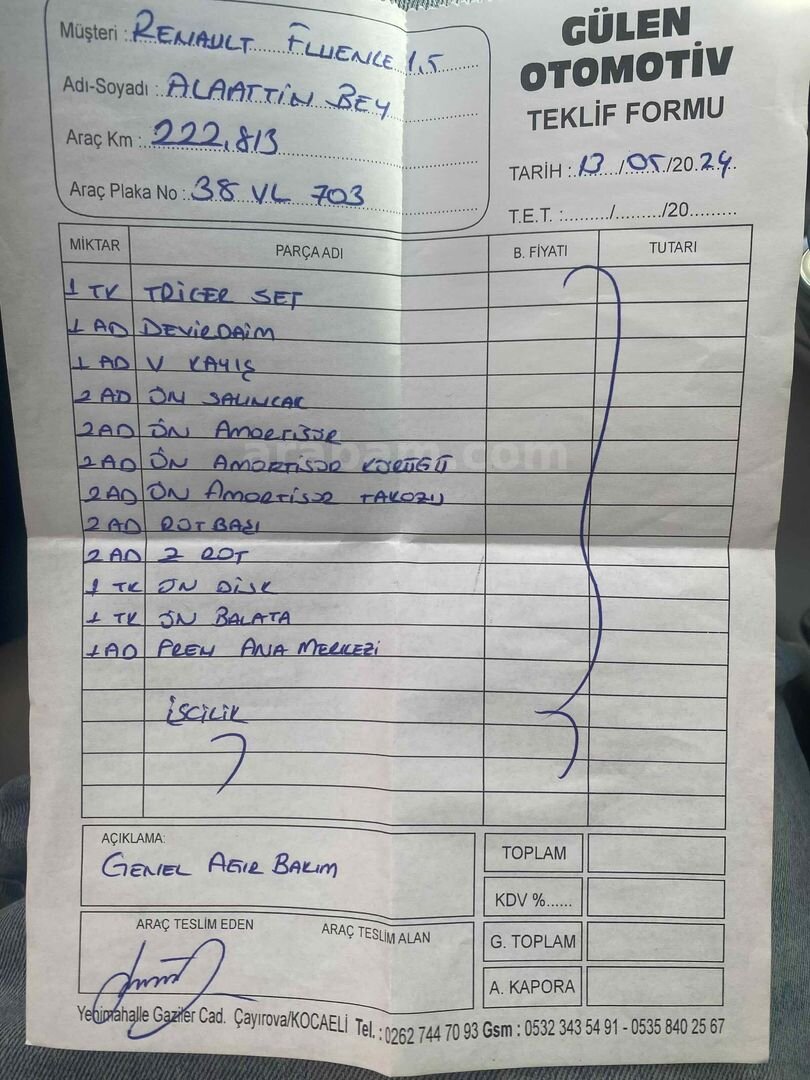 Müşteri : RENAULT FLUENCE 1,5
Adı-Soyadı : ALAATTİN BEY
Araç Km : 222,813
Araç Plaka No : 38 VL 703
GÜLEN
OTOMOTİV
TEKLİF FORMU
TARİH : 13 /05 /20.24
T.E.T. :......../......../20.........
MİKTAR PARÇA ADI B. FİYATI TUTARI
1 TK TRİGER SET
1 AD DEVİRDAİM
1 AD V KAYIŞ
2 AD ÖN SALINCAK
2 AD ÖN AMORTİSÖR
2 AD ÖN AMORTİSÖR KÖRÜĞÜ
2 AD ÖN AMORTİSÖR TAKOZU
2 AD ROTBAŞI
2 AD Z ROT
1 TK ÖN DİSK
1 TK ÖN BALATA
1 AD FREN ANA MERKEZİ
İŞÇİLİK
arabam.com
AÇIKLAMA:
GENEL AĞIR BAKIM
TOPLAM
KDV %......
G. TOPLAM
A. KAPORA
ARAÇ TESLİM EDEN ARAÇ TESLİM ALAN
Yenimahalle Gaziler Cad. Çayırova/KOCAELİ Tel. : 0262 744 70 93 Gsm : 0532 343 54 91 - 0535 840 25 67